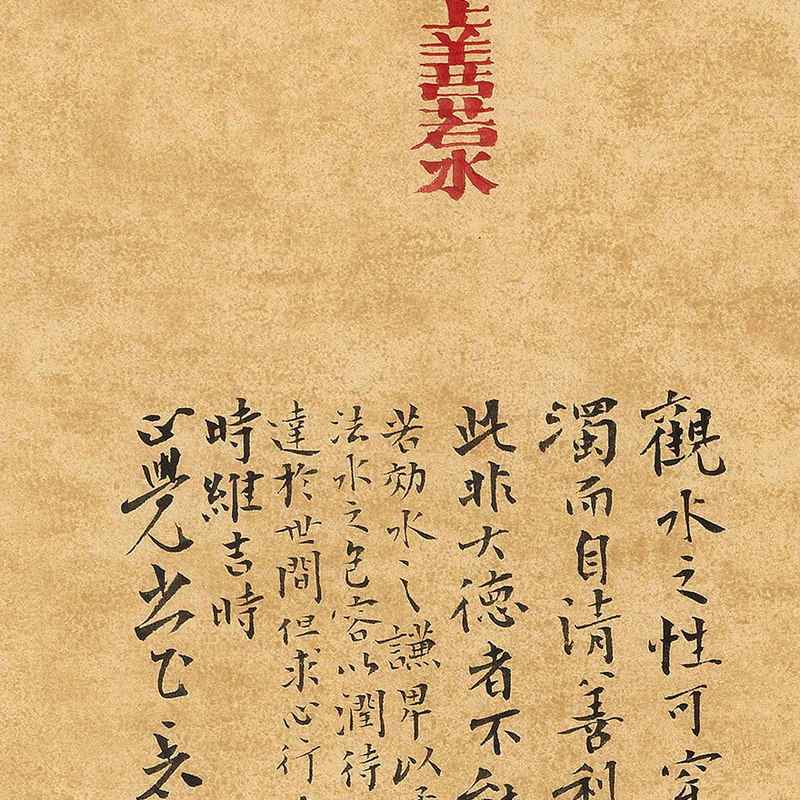 上善若水
觀水之性可穿
濁而自清善利
此非大德者不能
若効水之謙畢以
法水之包容以潤待
達於世間但求心行
時維吉時
正覺